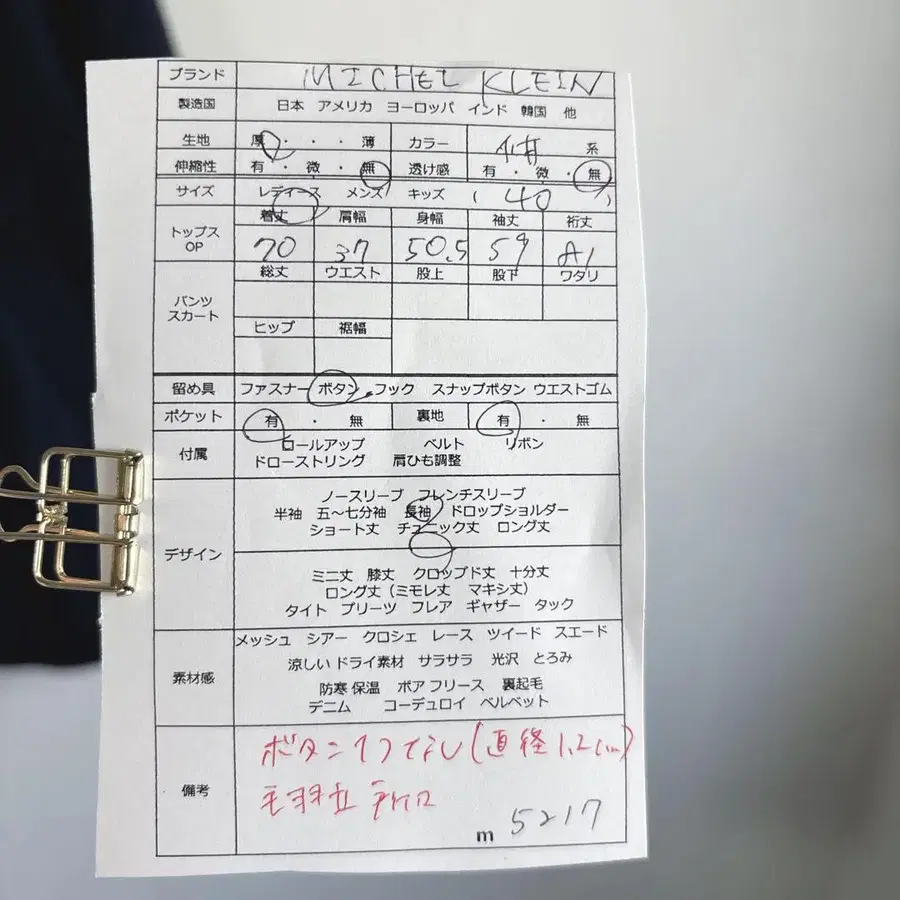 ブランド MICHEL KLEIN
製造国 日本 アメリカ ヨーロッパ インド 韓国 他
生地 厚・・・・薄 カラー 紺 系
伸縮性 有・微・無 透け感 有・微・無
サイズ レディース メンズ キッズ ( 40 )
トップス OP 着丈 肩幅 身幅 袖丈 裄丈
70 37 50.5 59
パンツ スカート 総丈 ウエスト 股上 股下 ワタリ
ヒップ 裾幅
留め具 ファスナー ボタン フック スナップボタン ウエストゴム
ポケット 有・無 裏地 有・無
付属 ロールアップ ベルト リボン
ドローストリング 肩ひも調整
デザイン ノースリーブ フレンチスリーブ
半袖 五〜七分袖 長袖 ドロップショルダー
ショート丈 チュニック丈 ロング丈
ミニ丈 膝丈 クロップド丈 十分丈
ロング丈(ミモレ丈 マキシ丈)
タイト プリーツ フレア ギャザー タック
素材感 メッシュ シアー クロシェ レース ツイード スエード
涼しい ドライ素材 サラサラ 光沢 とろみ
防寒 保温 ボア フリース 裏起毛
デニム コーデュロイ ベルベット
備考 ボタン1つなし(直径1.2cm)
m 5217